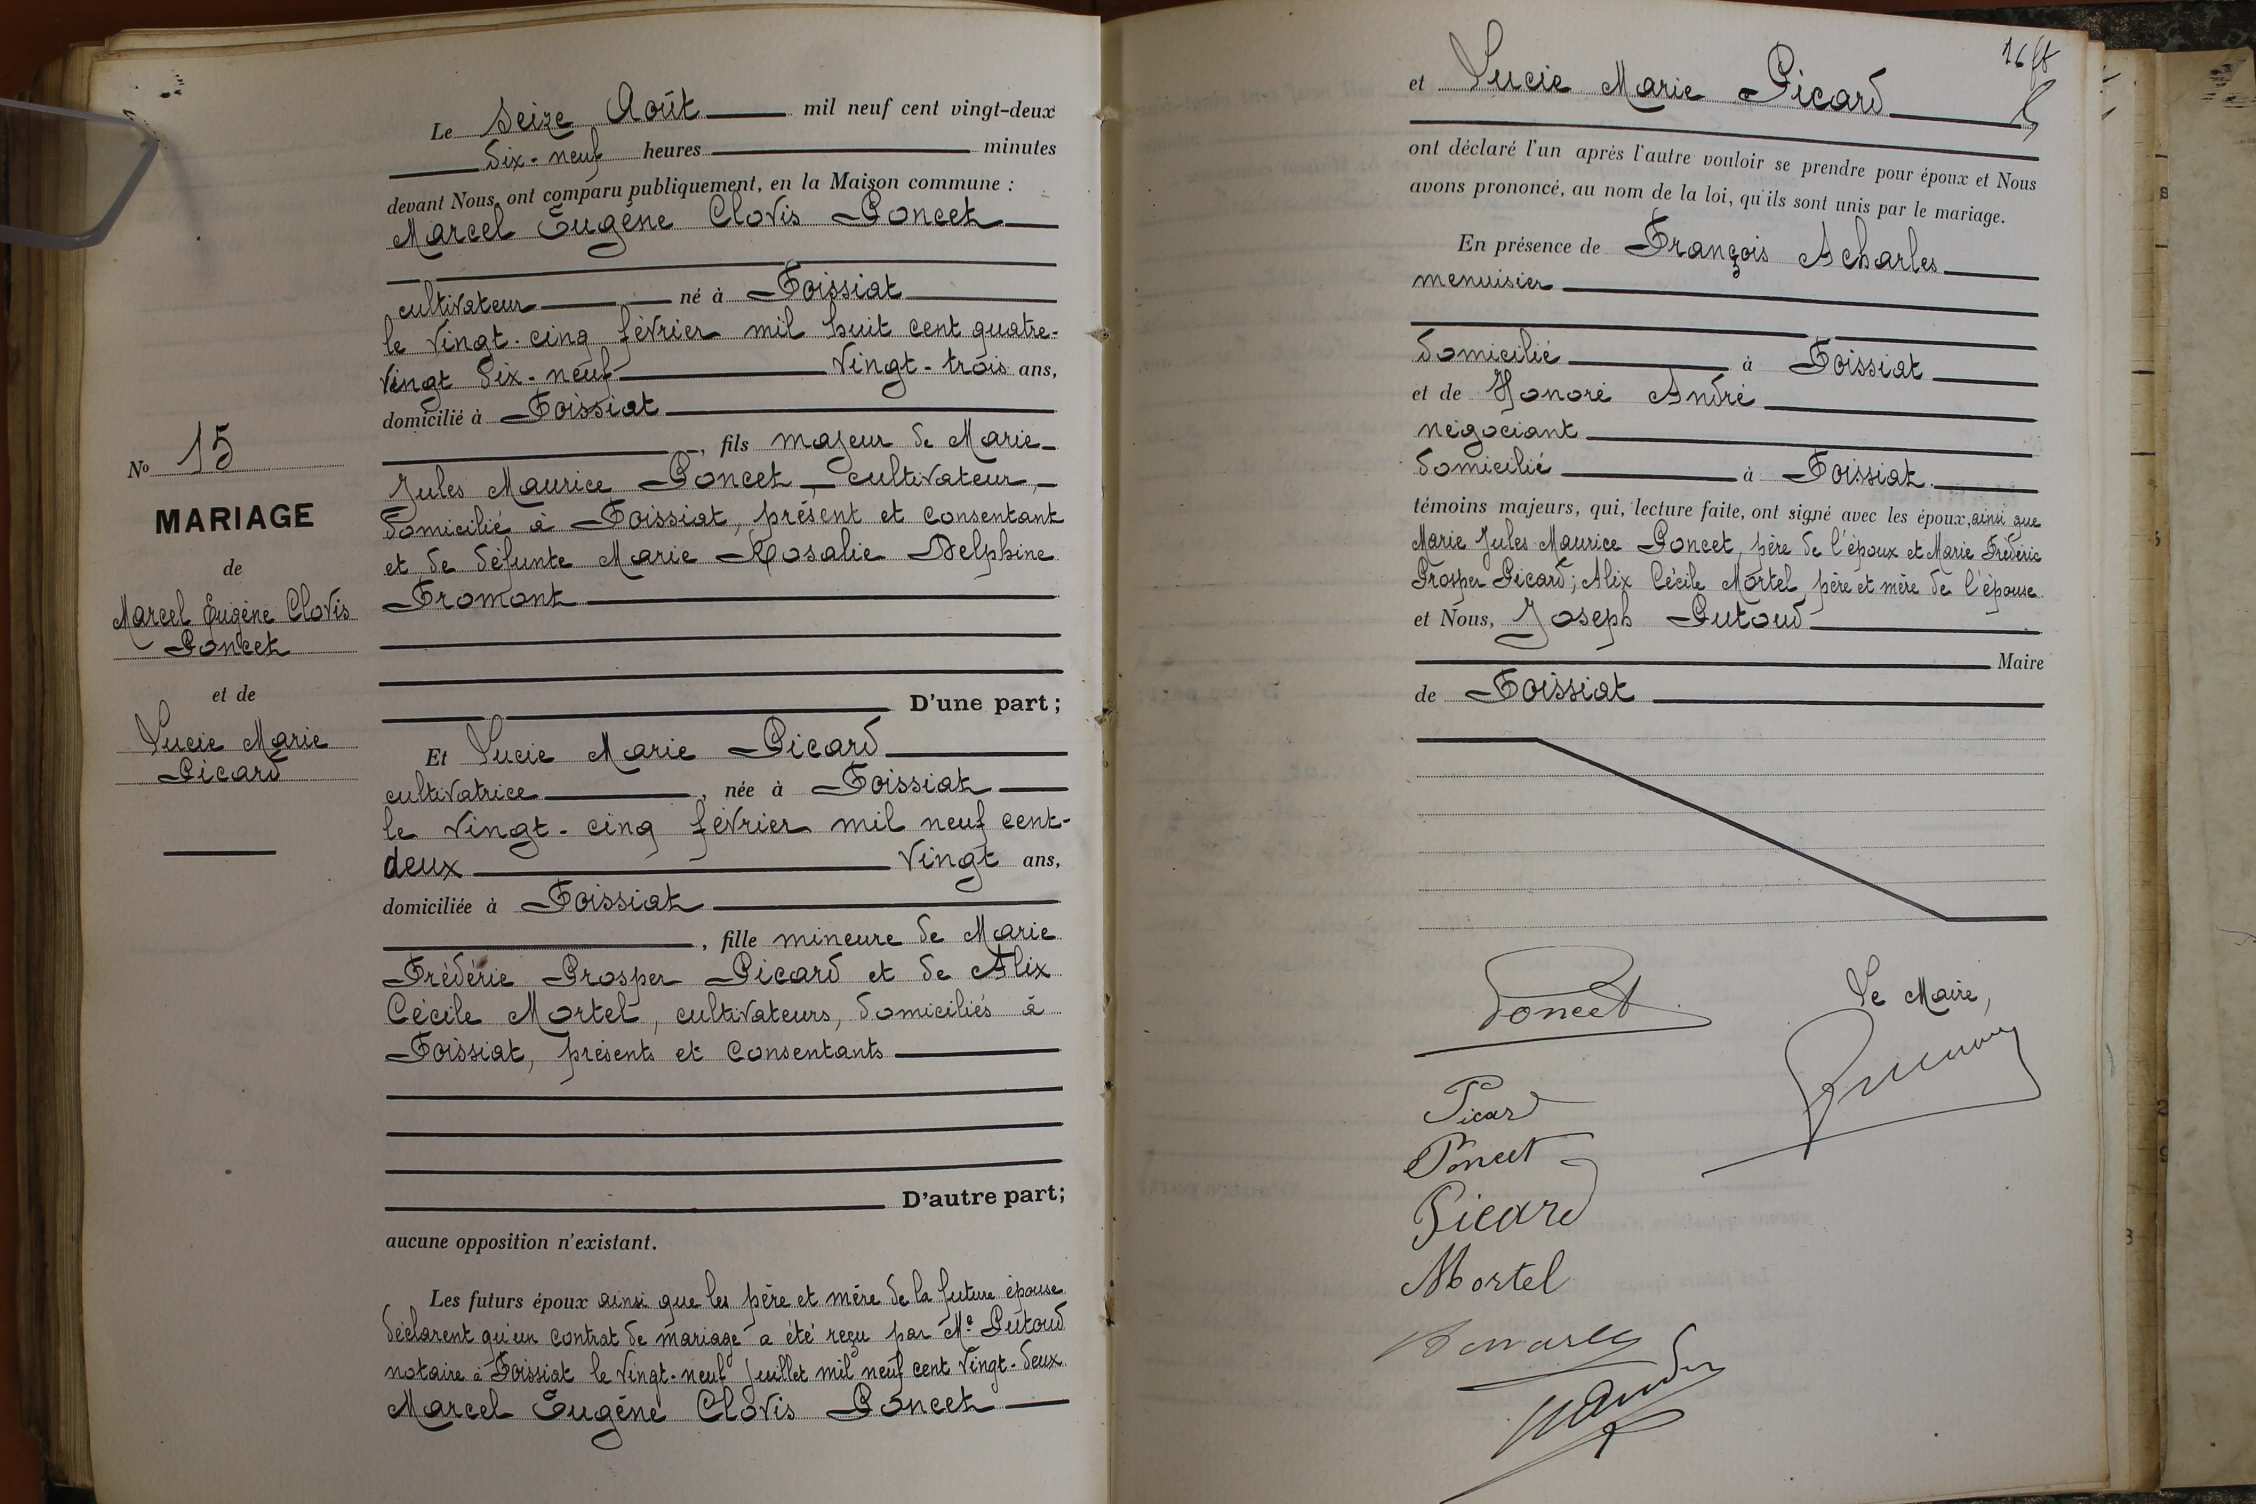 Le Seize Août mil neuf cent vingt-deux
dix-neuf heures minutes
devant Nous, ont comparu publiquement, en la Maison commune :
Marcel Eugène Clovis Poncet
cultivateur né à Foissiat
le vingt-cinq février mil huit cent quatre-
vingt dix-neuf vingt-trois ans,
domicilié à Foissiat
, fils majeur de Marie
Jules Maurice Poncet, cultivateur,
domicilié à Foissiat, présent et consentant
et de défunte Marie Rosalie Delphine
Fromont
D'une part ;
Et Lucie Marie Picard
cultivatrice, née à Foissiat
le vingt-cinq février mil neuf cent-
deux vingt ans,
domiciliée à Foissiat
, fille mineure de Marie
Frédéric Prosper Picard et de Alix
Cécile Mortel, cultivateurs, domiciliés à
Foissiat, présents et consentants
D'autre part ;
aucune opposition n'existant.
Les futurs époux ainsi que les père et mère de la future épouse
déclarent qu'un contrat de mariage a été reçu par Me Putoud
notaire à Foissiat le vingt-neuf Juillet mil neuf cent vingt-deux
Marcel Eugène Clovis Poncet
No 15
MARIAGE
de
Marcel Eugène Clovis
Poncet
et de
Lucie Marie
Picard
16
et Lucie Marie Picard
ont déclaré l'un après l'autre vouloir se prendre pour époux et Nous
avons prononcé, au nom de la loi, qu'ils sont unis par le mariage.
En présence de François Acharles
menuisier
domicilié à Foissiat
et de Honoré André
négociant
domicilié à Foissiat
témoins majeurs, qui, lecture faite, ont signé avec les époux, ainsi que
Marie Jules Maurice Poncet, père de l'époux et Marie Frédéric
Prosper Picard ; Alix Cécile Mortel, père et mère de l'épouse
et Nous, Joseph Putoud
Maire
de Foissiat
Poncet
Le Maire,
Picard
Poncet
Picard
Mortel